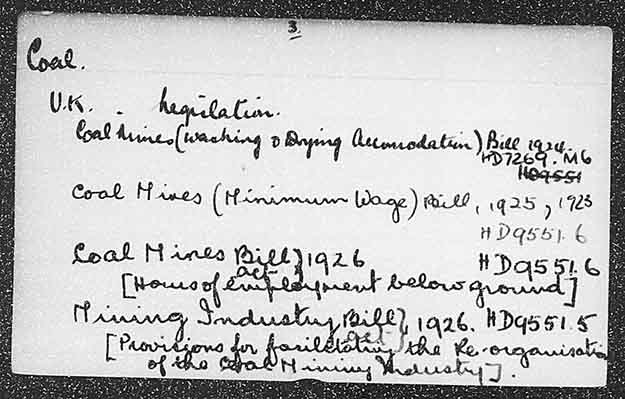 3.
Coal.
U.K. . Legislation.
Coal Mines (Washing & Drying Accomodation) Bill 1924.
HD7269. M6
HD9551
Coal Mines (Minimum Wage) Bill, 1925, 1923
HD9551.6
Coal Mines Bill} 1926 HD9551.6
act
[Hours of employment below ground]
Mining Industry Bill}, 1926. HD9551.5
act
[Provisions for facilitating the Re-organisation
of the Coal Mining Industry].